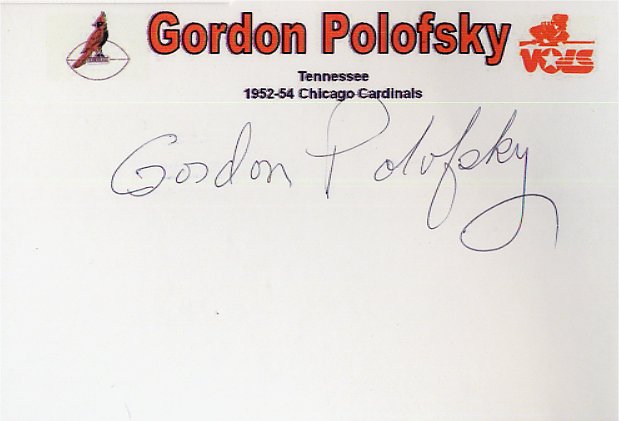 Gordon Polofsky
VOLS
Tennessee
1952-54 Chicago Cardinals
Gordon Polofsky